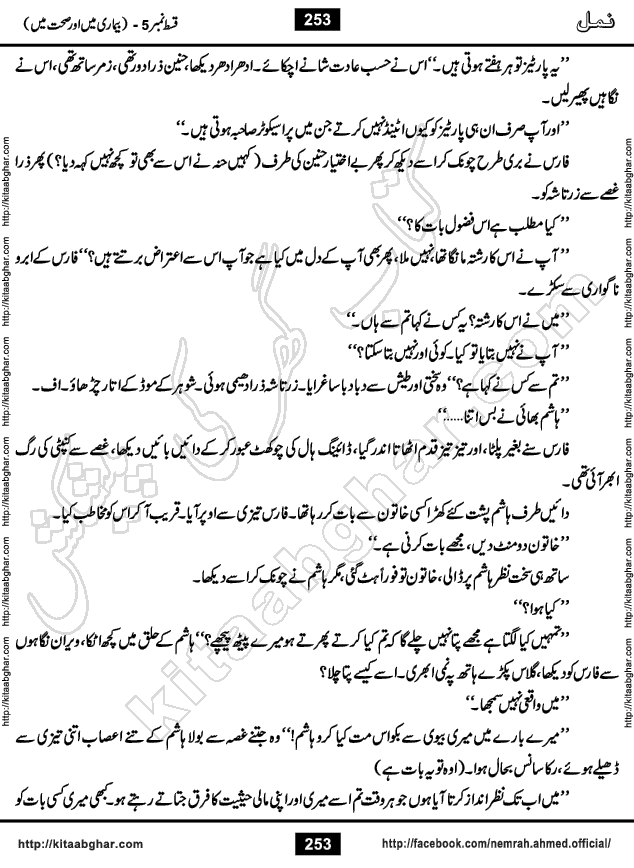 نمل
253
قسط نمبر 5 - (بیماری میں اور صحت میں)
’’یہ پارٹیز تو ہر ہفتے ہوتی ہیں۔‘‘ اس نے حسب عادت شانے اچکائے۔ ادھر ادھر دیکھا، حنین ذرا دور تھی، زمر ساتھ تھی، اس نے
نگاہیں پھیر لیں۔
’’اور آپ صرف ان ہی پارٹیز کو کیوں اٹینڈ نہیں کرتے جن میں پراسیکوٹر صاحبہ ہوتی ہیں۔‘‘
فارس نے بری طرح چونک کر اسے دیکھ کر پھر بے اختیار حنین کی طرف (کہیں حنہ نے اس سے بھی تو کچھ نہیں کہہ دیا؟) پھر ذرا
غصے سے زرتاشہ کو۔
’’کیا مطلب ہے اس فضول بات کا؟‘‘
’’آپ نے اس کا رشتہ مانگا تھا، نہیں ملا، پھر بھی آپ کے دل میں کیا ہے جو آپ اس سے اعتراض برتتے ہیں؟‘‘ فارس کے ابرو
ناگواری سے سکڑے۔
’’میں نے اس کا رشتہ؟ یہ کس نے کہا تم سے ہاں۔‘‘
’’آپ نے نہیں بتایا تو کیا۔ کوئی اور نہیں بتا سکتا؟‘‘
’’تم سے کس نے کہا ہے؟‘‘ وہ سختی اور طیش سے دبا دبا سا غرایا۔ زرتاشہ ذرا دھیمی ہوئی۔ شوہر کے موڈ کے اتار چڑھاؤ۔ اف۔
’’ہاشم بھائی نے بس اتنا.....‘‘
فارس سنے بغیر پلٹا، اور تیز تیز قدم اٹھاتا اندر گیا، ڈائینگ ہال کی چوکھٹ عبور کر کے دائیں بائیں دیکھا، غصے سے کنپٹی کی رگ
ابھر آئی تھی۔
دائیں طرف ہاشم پشت کئے کھڑا کسی خاتون سے بات کر رہا تھا۔ فارس تیزی سے اوپر آیا۔ قریب آ کر اس کو مخاطب کیا۔
’’خاتون دو منٹ دیں، مجھے بات کرنی ہے۔‘‘
ساتھ ہی سخت نظر ہاشم پر ڈالی، خاتون تو فوراً ہٹ گئی، مگر ہاشم نے چونک کر اسے دیکھا۔
’’کیا ہوا؟‘‘
’’تمہیں کیا لگتا ہے مجھے پتا نہیں چلے گا کہ تم کیا کرتے پھرتے ہو میرے پیٹھ پیچھے؟‘‘ ہاشم کے حلق میں کچھ اٹکا، ویران نگاہوں
سے فارس کو دیکھا، گلاس پکڑے ہاتھ پہ نمی ابھری۔ اسے کیسے پتا چلا؟
’’میں واقعی نہیں سمجھا۔‘‘
’’میرے بارے میں میری بیوی سے بکواس مت کیا کرو ہاشم!‘‘ وہ جتنے غصہ سے بولا ہاشم کے تنے اعصاب اتنی تیزی سے
ڈھیلے ہوئے، رکا سانس بحال ہوا۔ (اوہ تو یہ بات ہے)
’’میں اب تک نظر انداز کرتا آیا ہوں جو ہر وقت تم اسے میری اور اپنی مالی حیثیت کا فرق جتاتے رہتے ہو۔ کبھی میری کسی بات کو
http://kitaabghar.com
253
http://facebook.com/nemrah.ahmed.official/
http://kitaabghar.com
http://kitaabghar.com
http://kitaabghar.com
http://kitaabghar.com
http://kitaabghar.com
http://kitaabghar.com
http://kitaabghar.com
http://kitaabghar.com
http://kitaabghar.com
http://kitaabghar.com
http://kitaabghar.com
http://kitaabghar.com
کتاب گھر کی پیشکش
kitaabghar.com